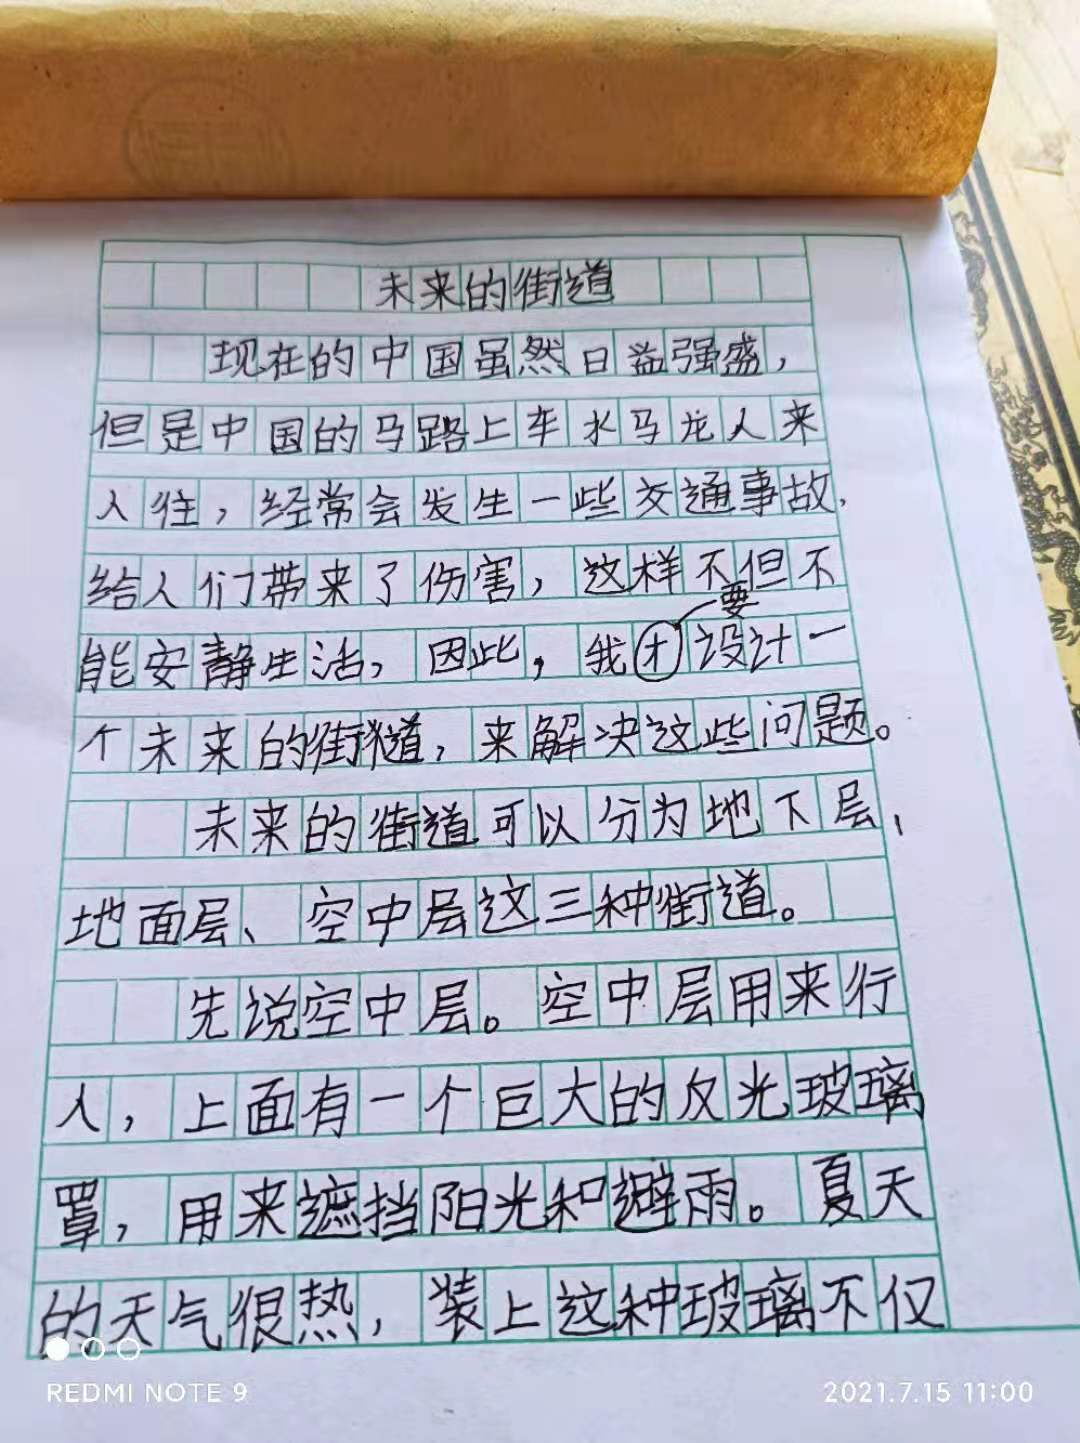 未来的街道
现在的中国虽然日益强盛，
但是中国的马路上车水马龙人来
人往，经常会发生一些交通事故，
给人们带来了伤害，这样不但不
要
能安静生活，因此，我才设计一
个未来的街道，来解决这些问题。
未来的街道可以分为地下层、
地面层、空中层这三种街道。
先说空中层。空中层用来行
人，上面有一个巨大的反光玻璃
罩，用来遮挡阳光和避雨。夏天
的天气很热，装上这种玻璃不仅
REDMI NOTE 9
2021.7.15 11:00